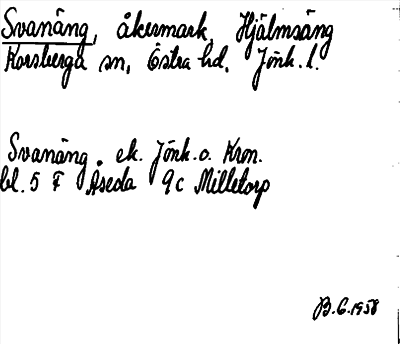 Svanäng, åkermark, Hjälmsäng
Korsberga sn, Östra hd, Jönk. l.
Svanäng. ek. Jönk. o. Kron.
bl. 5 F Åseda 9c Milletorp
B.G. 1958